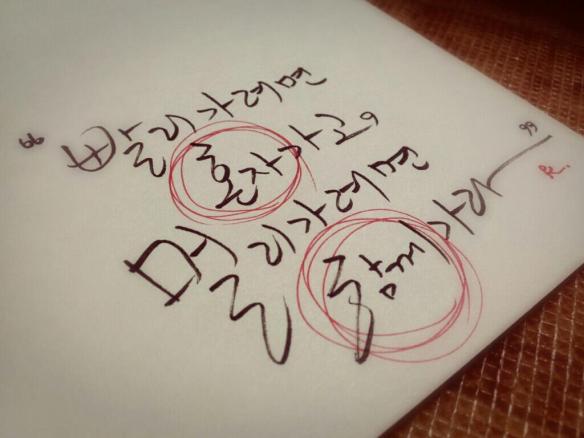 “ 빨리 가려면
혼자 가고
멀리 가려면
함께 가라 ”
R.